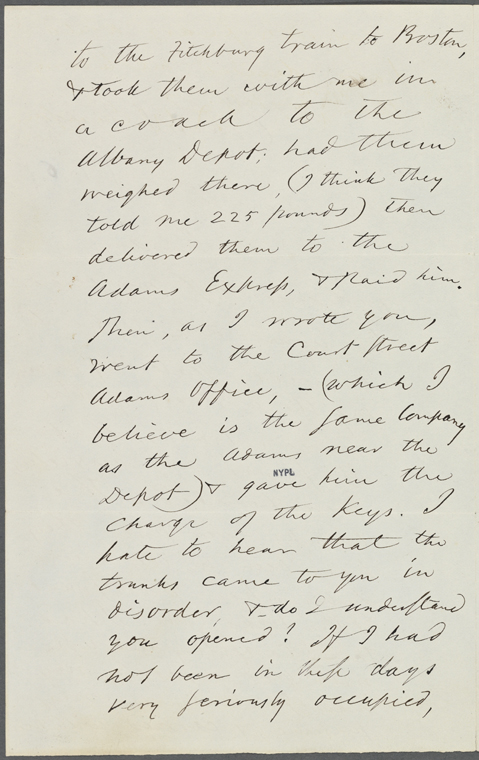 to the Fitchburg train to Boston,
& took them with me in
a coach to the
Albany Depot; had them
weighed there, (I think they
told me 225 pounds) then
delivered them to the
Adams Express, & paid him.
Then, as I wrote you,
went to the Court Street
Adams Office, — (which I
believe is the same Company
as the Adams near the
NYPL
Depot) & gave him the
charge of the Keys. I
hate to hear that the
trunks came to you in
disorder, & do I understand
you opened? If I had
not been in these days
very seriously occupied,